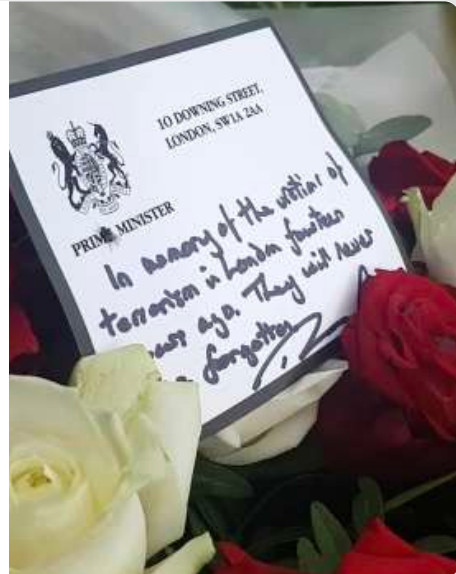 10 DOWNING STREET,
LONDON, SW1A 2AA
PRIME MINISTER
In memory of the victims of
terrorism in London fourteen
years ago. They will never
be forgotten